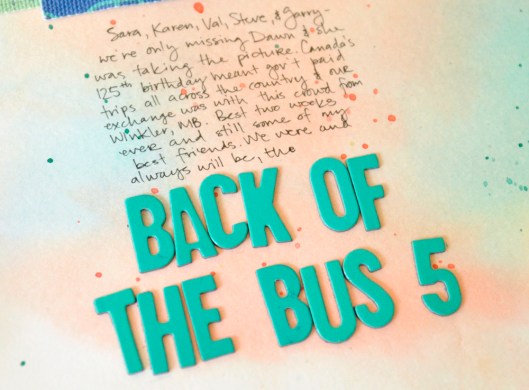 Sara, Karen, Val, Steve, & Garry-
we're only missing Dawn & she
was taking the picture. Canada's
125th birthday meant gov't paid
trips all across the country & our
exchange was with this crowd from
Winkler, MB. Best two weeks
ever and still some of my
best friends. We were and
always will be, the
BACK OF
THE BUS 5